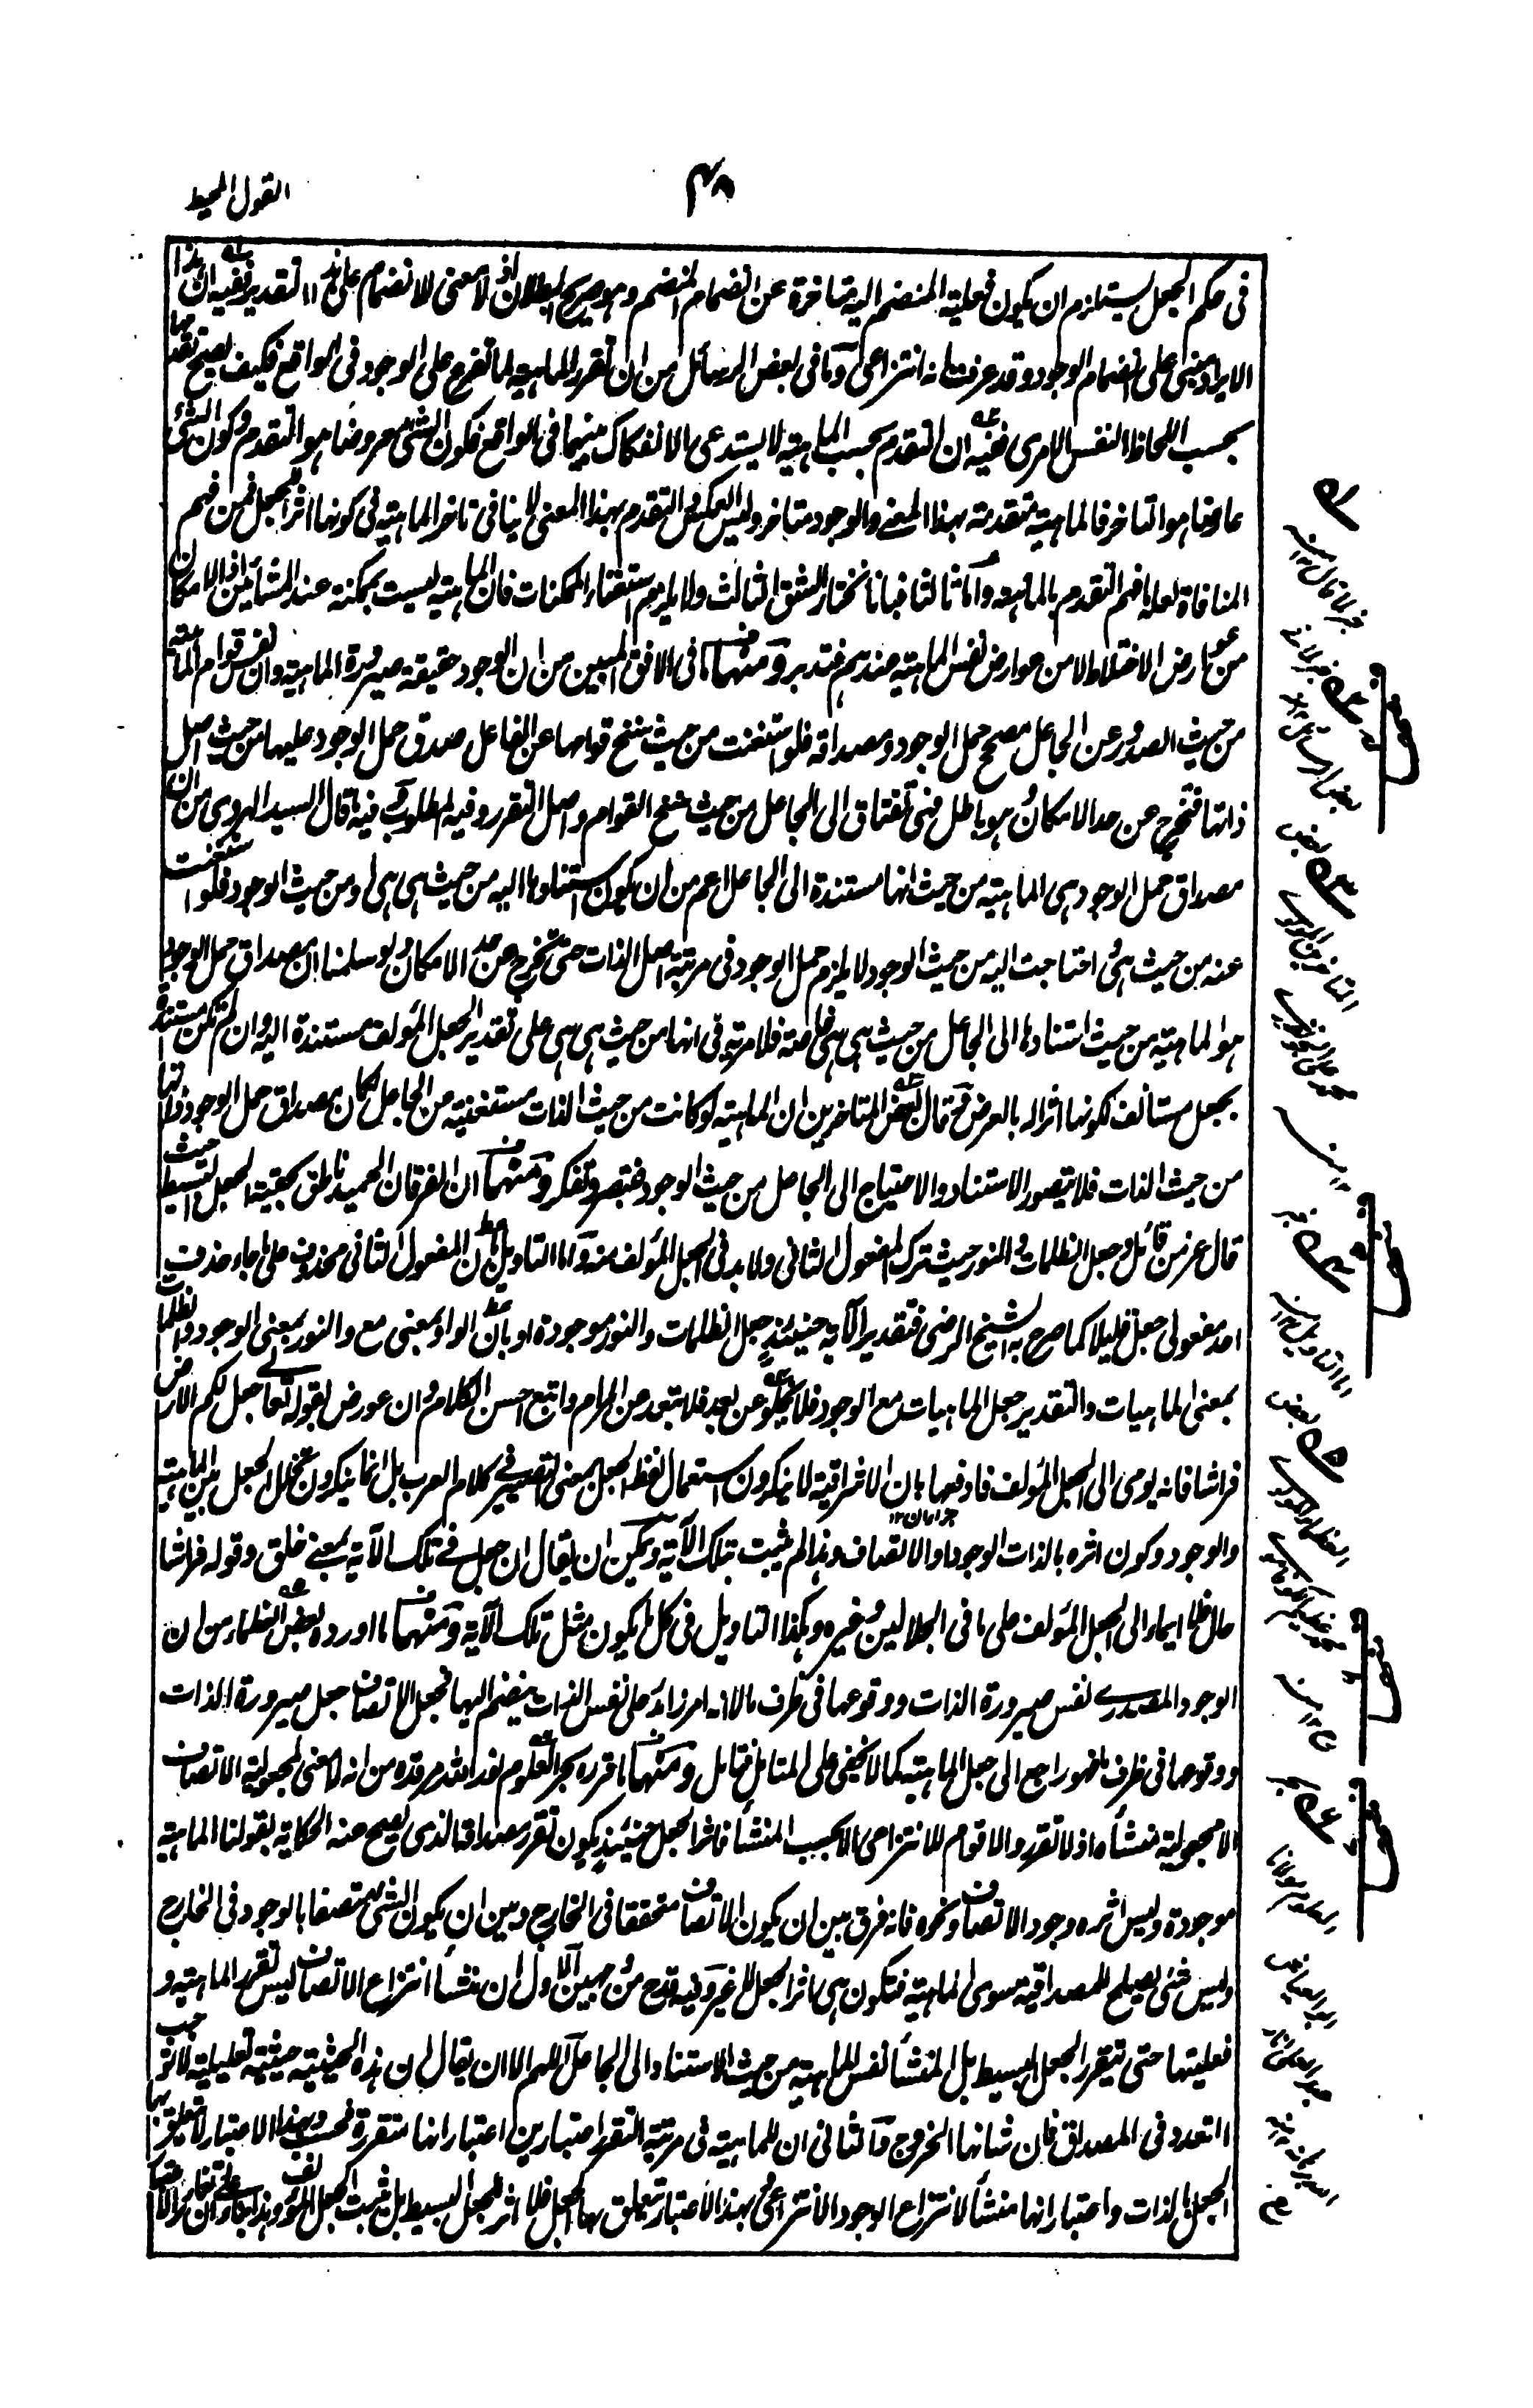 القول المحيط
٤٨
فى حكم الجعل يستلزم ان يكون فعلية المنضم اليه متاخرة عن انضمام المنضم وهو صريح البطلان اذ لا معنى للانضمام على هذا التقدير ففيه ان هذا
الايراد مبنى على انضمام الوجود وقد عرفت انه انتزاعى وما فى بعض الرسائل من ان تقرر الماهية لما تفرع على الوجود فى الواقع فكيف يصح تقدمها
بحسب اللحاظ النفس الامرى ففيه ان التقدم بحسب الماهية لا يستدعى الانفكاك بينهما فى الواقع فكون الشئ معروضا هو التقدم وكون الشئ
عارضا هو التاخر فالماهية متقدمة بهذا المعنى والوجود متاخر وليس العكس والتقدم بهذا المعنى لا ينافى تاخر الماهية فى كونها اثر الجعل فمن فهم
المنافاة لعله لم يفهم التقدم بالماهية وآما ثالثا فبانا نختار الشق الثالث ولا يلزم استغناء الممكنات فان الماهية ليست بممكنة عند المشائين اذ الامكان
من عوارض الاختلاط لا من عوارض نفس الماهية عندهم فتدبر ومنها ما فى الافق المبين من ان الوجود حقيقة صيرورة الماهية وان نفس قوام الماهية
من حيث الصدور عن الجاعل مصحح حمل الوجود ومصداقه فلو استغنت من حيث سنخ قوامها عن الفاعل صدق حمل الوجود عليها من حيث اصل
ذاتها فتخرج عن حد الامكان وهو باطل فهى تفتاق الى الجاعل من حيث سنخ القوام واصل التقرر وفيه المطلوب وفيه ما قال السيد الهروى من ان
مصداق حمل الوجود هى الماهية من حيث انها مستندة الى الجاعل اعم من ان يكون استنادها اليه من حيث هى هى او من حيث الوجود فلو استغنت
عنه من حيث هى واحتاجت اليه من حيث الوجود لا يلزم حمل الوجود فى مرتبة اصل الذات حتى تخرج عن حد الامكان ولو سلمنا ان مصداق حمل الوجود
هو الماهية من حيث استنادها الى الجاعل من حيث هى هى خاصة فلا مرية فى انها من حيث هى هى على تقدير الجعل المؤلف مستندة اليه وان لم تكن مستندة
بجعل مستانف لكونها اثرا له بالعرض وقال بعض المتاخرين ان الماهية لو كانت من حيث الذات مستغنية من الجاعل لكان مصداق حمل الوجود ذاتها
من حيث الذات فلا يتصور الاستناد والاحتياج الى الجاعل من حيث الوجود فتبصر وتفكر ومنها ان الفرقان الحميد ناطق بحقية الجعل البسيط حيث
قال عز من قائل وجعل الظلمات والنور حيث ترك المفعول الثانى ولا بد فى الجعل المؤلف منه وآما التاويل بان المفعول الثانى محذوف على ما جاء حذف
احد مفعولى جعل قليلا كما صرح به الشيخ الرضى فتقدير الآية حينئذ جعل الظلمات والنور موجودة او بان الواو بمعنى مع والنور بمعنى الوجود والظلمات
بمعنى الماهيات والتقدير جعل الماهيات مع الوجود فلا يخلو عن بعد فلا تبعد من المرام واتبع احسن الكلام وان عورض بقوله تعالى جعل لكم الارض
فراشا فانه يومى الى الجعل المؤلف فادفعها بان الاشراقية لا ينكرون استعمال لفظ الجعل بمعنى التصيير فى كلام العرب بل انما ينكرون تخلل الجعل بين الماهية
والوجود وكون اثره بالذات الوجود او الاتصاف وذا لم يثبت بتلك الآية ويمكن ان يقال ان جعل فى تلك الآية بمعنى خلق وقوله فراشا
حال فلا ايماء الى الجعل المؤلف على ما فى الجلالين وغيره وهكذا التاويل فى كل ما يكون مثل تلك الآية ومنها ما اورده بعض العظماء من ان
الوجود المصدرى نفس صيرورة الذات ووقوعها فى ظرف ما لا انه امر زائد على نفس الذات ينضم اليها فجعل الاتصاف جعل صيرورة الذات
ووقوعها فى ظرف ما فهو راجع الى جعل الماهية كما لا يخفى على المتامل فتامل ومنها ما قرره بحر العلوم نور الله مرقده من انه لا معنى لمجعولية الاتصاف
الا مجعولية منشأه اذ لا تقرر ولا قوام للانتزاعى الا بحسب المنشأ فاثر الجعل حينئذ يكون تقرر مصداقه الذى يصح عنه الحكاية بقولنا الماهية
موجودة وليس اثره وجود الاتصاف ونحوه فانه فرق بين ان يكون الاتصاف متحققا فى الخارج وبين ان يكون الشئ متصفا بالوجود فى الخارج
وليس شئ يصلح للمصداقية سوى الماهية فتكون هى اثر الجعل لا غير وفيه قدح من وجهين الاول ان منشأ انتزاع الاتصاف ليس تقرر الماهية و
فعليتها حتى يتقرر الجعل البسيط بل المنشأ نفس الماهية من حيث الاستناد الى الجاعل اللهم الا ان يقال ان هذه الحيثية حيثية تعليلية لا توجب
التعدد فى المصداق فان شانها الخروج والثانى ان للماهية فى مرتبة التقرر اعتبارين اعتبار انها متقررة فحسب وبهذا الاعتبار لا يتعلق بها
الجعل بالذات واعتبار انها منشأ لانتزاع الوجود الانتزاعى وبهذا الاعتبار يتعلق بها الجعل فلا اثر للجعل البسيط بل ثبت الجعل المؤلف